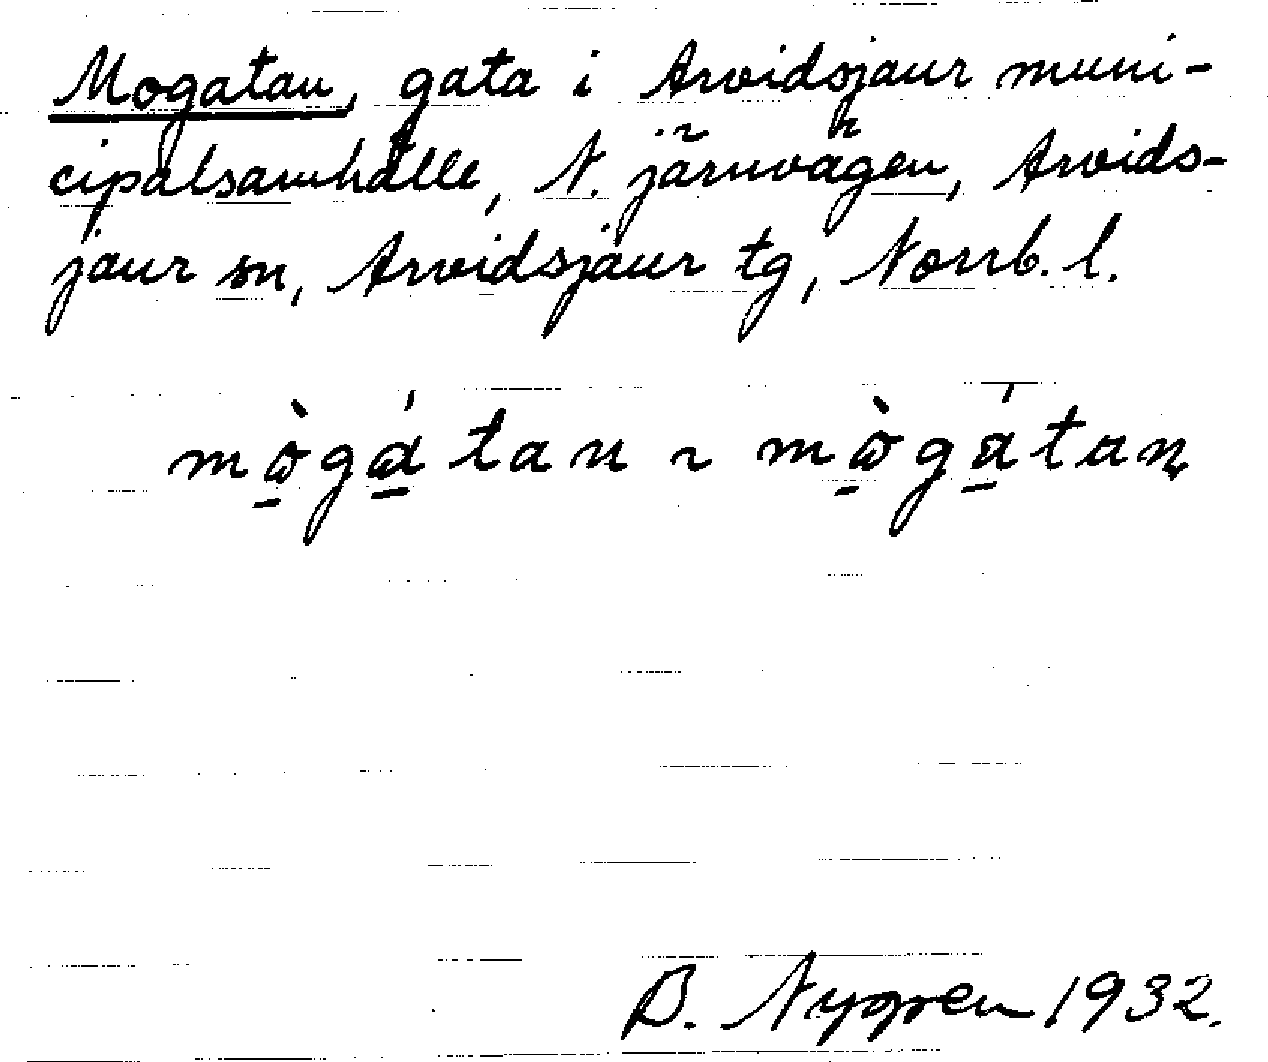 Mogatan, gata i Arvidsjaur muni-
cipalsamhälle, N. järnvägen, Arvids-
jaur sn, Arvidsjaur tg, Norrb. l.
mò̲gá̲tan ~ mò̲gá̲taṇ
B. Nygren 1932.